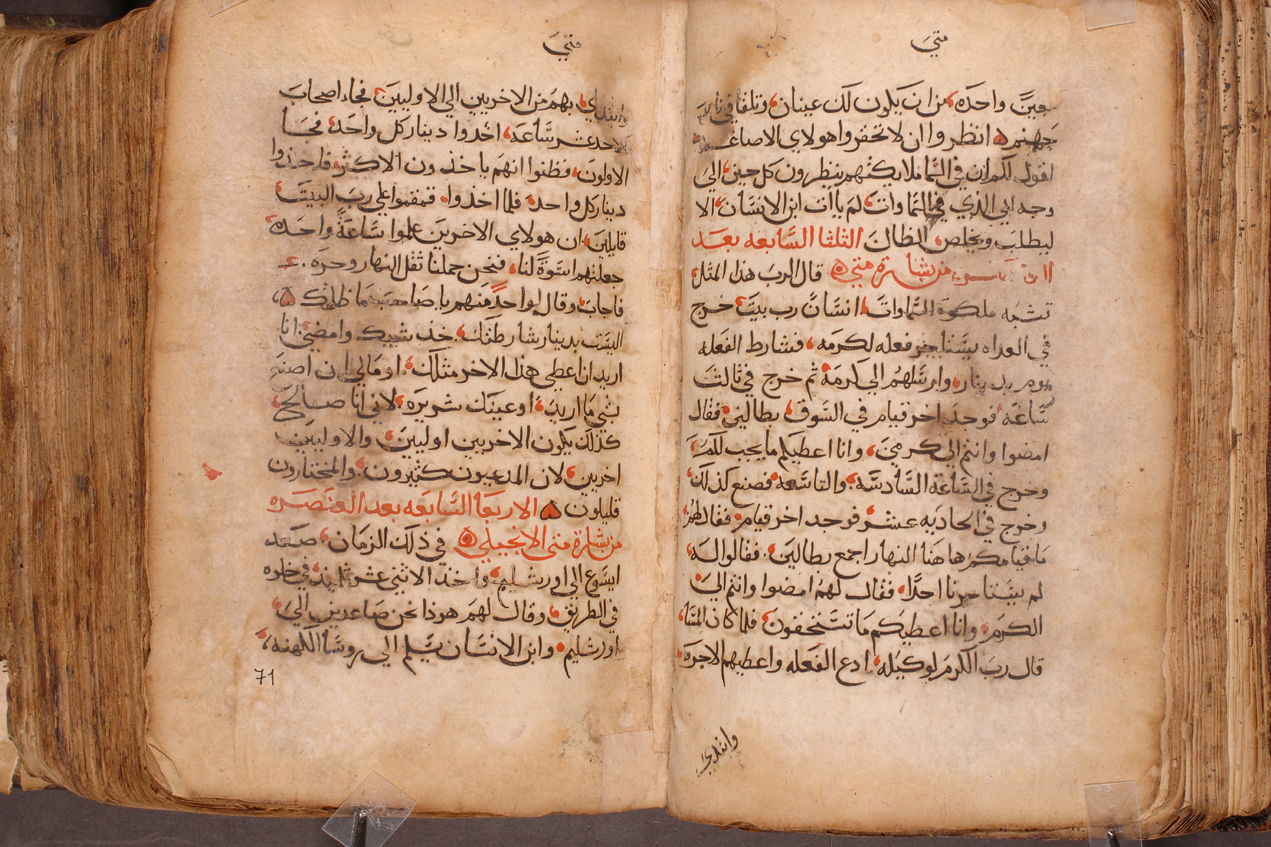 متي
بعين واحده من ان يكون لك عينان وتلقا في نار
جهنم انظروا ان لا تحقروا هولاي الاصاغر
اقول لكم ان في السما ملايكتهم ينظرون كل حين الي
وجه ابي الذي في السماوات لم يات ابن الانسان الا
ليطلب ويخلص الظال الثلثا السابعه بعد
من بشارة متي قال الرب هذا المثل
تشبه ملكوة السماوات انسان رب بيت خرج
في الغداه يستاجر فعله لكرمه فشارط الفعله
يوم بدينار وارسلهم الي كرمه ثم خرج في ثالث
ساعه فوجد اخر قيام في السوق بطالين فقال
امضوا وانتم الي كرمي وانا اعطيكم ما يجب لكم
وخرج في الساعة السادسه والتاسعه فصنع كذلك
وخرج في الحاديه عشر فوجد اخر قيام فقال لهم
ما قيامكم هاهنا النهار اجمع بطالين فقالوا له
لم يستاجرنا احدا فقال لهم امضوا وانتم الي
الكرم وانا اعطيكم ما تستحقون فلما كان المسا
قال رب الكرم لوكيله ادع الفعله واعطيهم الاجره
وابتدي
متي
وابتدي بهم من الاخريين الي الاوليين فجاء اصحاب
الاحد عشر ساعه اخذوا دينار كل واحد فجا
الاولون فظنوا انهم ياخذون الاكثر فاخذوا
دينار كل واحد فلما اخذوا تمقموا علي رب البيت
قايلين ان هولاي الاخرين عملوا ساعة واحده
جعلتهم اسوة لنا فنحن حملنا ثقل النهار وحره
فاجاب وقال لواحد منهم يا صاحب ما ظلمتك
اليس بدينار شارطتك خذ شييك وامضي انا
اريد ان اعطي هذا الاخر مثلك او ما لي ان اصنع
بشي ما اريد او عينك شريره لاني انا صالح
كذلك يكون الاخريين اوليين والاوليين
اخريين لان المدعيون كثيرون والمختارون
قليلون الاربعا السابعه بعد العنصره
من بشارة متي الانجيلي في ذلك الزمان صعد
ايسوع الي اورشليم واخذ الاثني عشر تلميذ في خلوه
في الطريق وقال لهم هوذا نحن صاعدين الي
اورشليم وابن الانسان يسلم الي روسا الكهنه
71